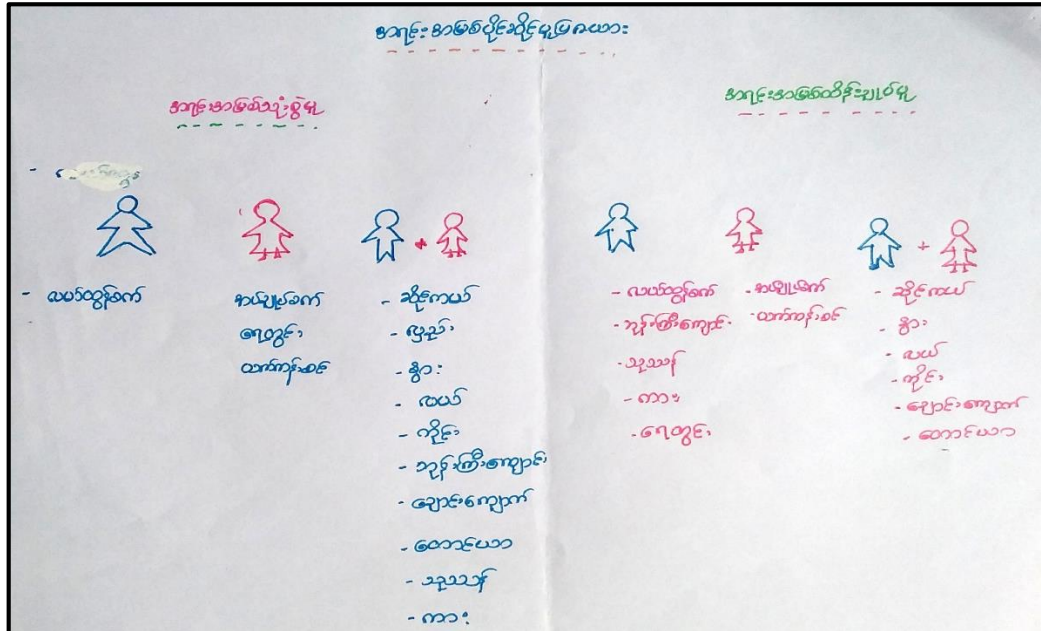 အရင်းအမြစ်ပိုင်ဆိုင်မှုပြဇယား
အရင်းအမြစ်သုံးစွဲမှု
- လယ်ထွန်စက်
အပ်ချုပ်စက်
ရေတွင်း
ယက်ကန်းစင်
- ဆိုင်ကယ်
- လှည်း
- နွား
- လယ်
- ကိုင်း
- ဘုန်းကြီးကျောင်း
- ချောင်းမြောက်
- တောင်ယာ
- သုသာန်
- ကား
အရင်းအမြစ်ထိန်းချုပ်မှု
- လယ်ထွန်စက်
- ဘုန်းကြီးကျောင်း
- သုသာန်
- ကား
- ရေတွင်း
- အပ်ချုပ်စက်
- ယက်ကန်းစင်
- ဆိုင်ကယ်
- နွား
- လယ်
- ကိုင်း
- တောင်ယာ